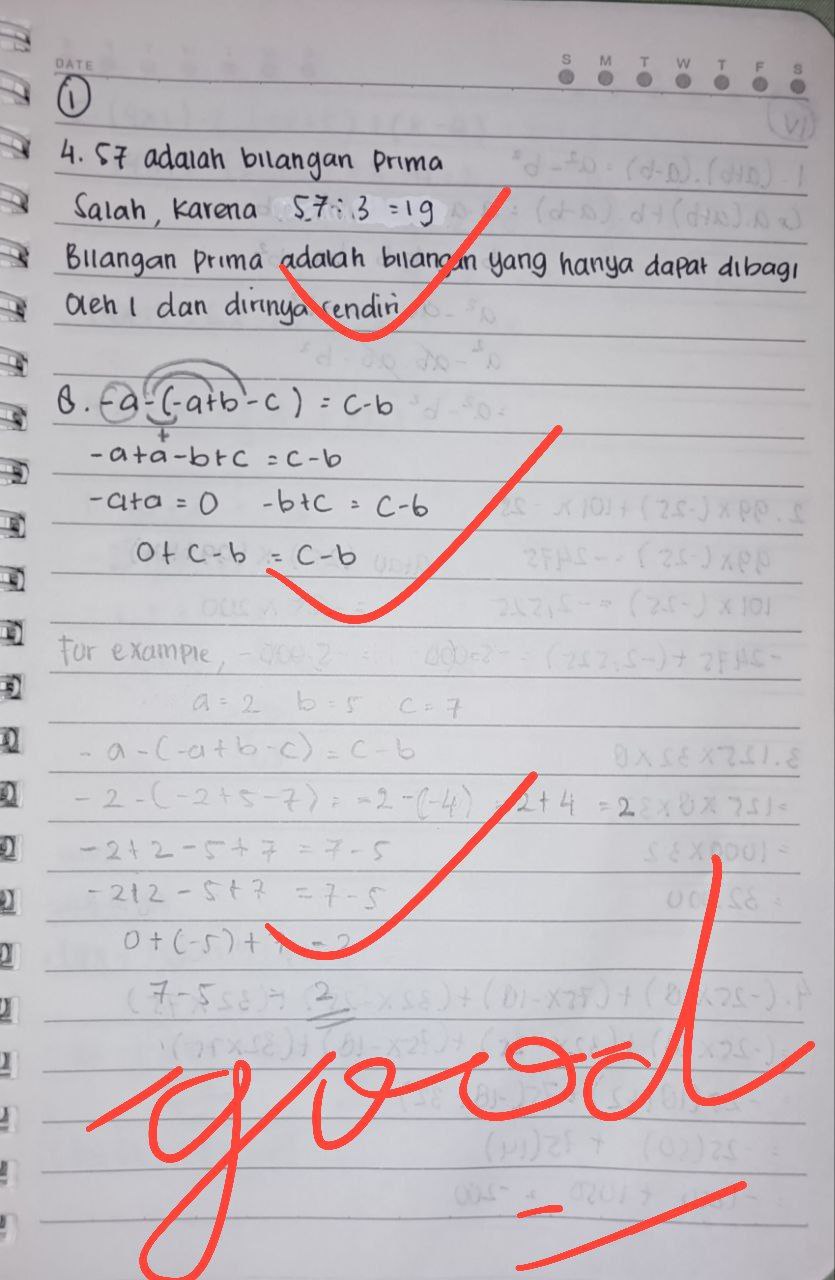 DATE
S M T W T F S
1
4. 57 adalah bilangan prima
Salah, karena 57 : 3 = 19
Bilangan prima adalah bilangan yang hanya dapat dibagi
oleh 1 dan dirinya sendiri
8. -a-(-a+b-c) = c-b
+
-a+a-b+c = c-b
-a+a = 0 -b+c = c-b
0+c-b = c-b
For example,
a=2 b=5 c=7
-a-(-a+b-c) = c-b
-2-(-2+5-7) = -2-(-4) = -2+4 = 2
-2+2-5+7 = 7-5
-2+2-5+7 = 7-5
0+(-5)+ = 2
7-5 = 2
good